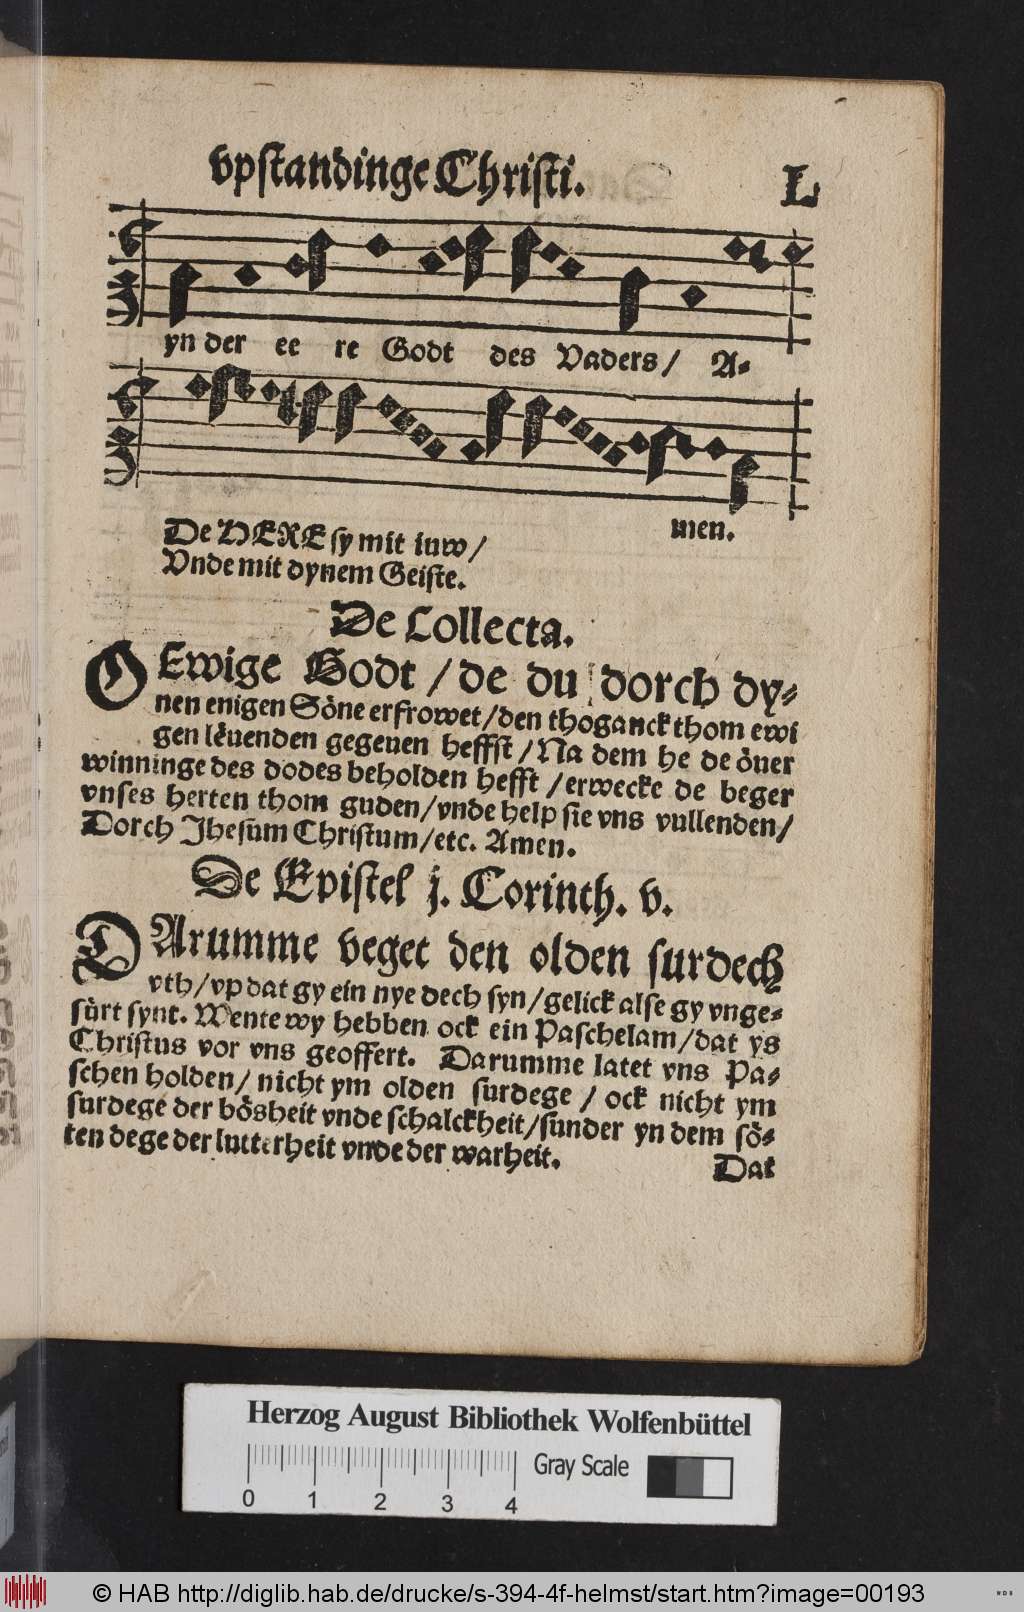 vpstandinge Christi. L
yn der ee re Godt des Vaders / A⸗
men.
De HERE sy mit iuw /
Vnde mit dynem Geiste.
De Collecta.
O Ewige Godt / de du dorch dy⸗
nen enigen Söne erfrowet / den thoganck thom ewi
gen lëuenden gegeuen heffst / Na dem he de öuer
winninge des dodes beholden hefft / erwecke de beger
vnses herten thom guden / vnde help sie vns vullenden /
Dorch Jhesum Christum / etc. Amen.
De Epistel j. Corinth. v.
DArumme veget den olden surdech
vth / vp dat gy ein nye dech syn / gelick alse gy vnge⸗
sürt synt. Wente wy hebben ock ein Paschelam / dat ys
Christus vor vns geoffert. Darumme latet vns Pa⸗
schen holden / nicht ym olden surdege / ock nicht ym
surdege der bösheit vnde schalckheit / sunder yn dem sö⸗
ten dege der lutterheit vnde der warheit.
Dat
Herzog August Bibliothek Wolfenbüttel
Gray Scale
0 1 2 3 4
© HAB http://diglib.hab.de/drucke/s-394-4f-helmst/start.htm?image=00193